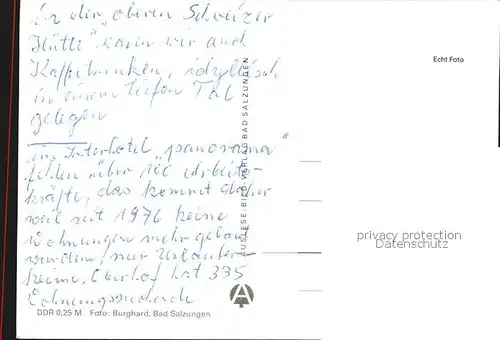 in der „oberen Schweizer
Hütte" kann wir auch
Kaffeetrinken, idyllisch
in einem tiefen Tal
gelegen
im Interhotel „panorama"
fehlen über 100 Arbeits-
kräfte, das kommt daher
weil seit 1976 keine
Wohnungen mehr gebaut
wurden, nur Urlauber-
heime. Oberhof hat 335
Wohnungssuchende
DDR 0,25 M Foto: Burghard, Bad Salzungen
AUSLESE-BILD-VERLAG BAD SALZUNGEN
A
Echt Foto
privacy protection
Datenschutz